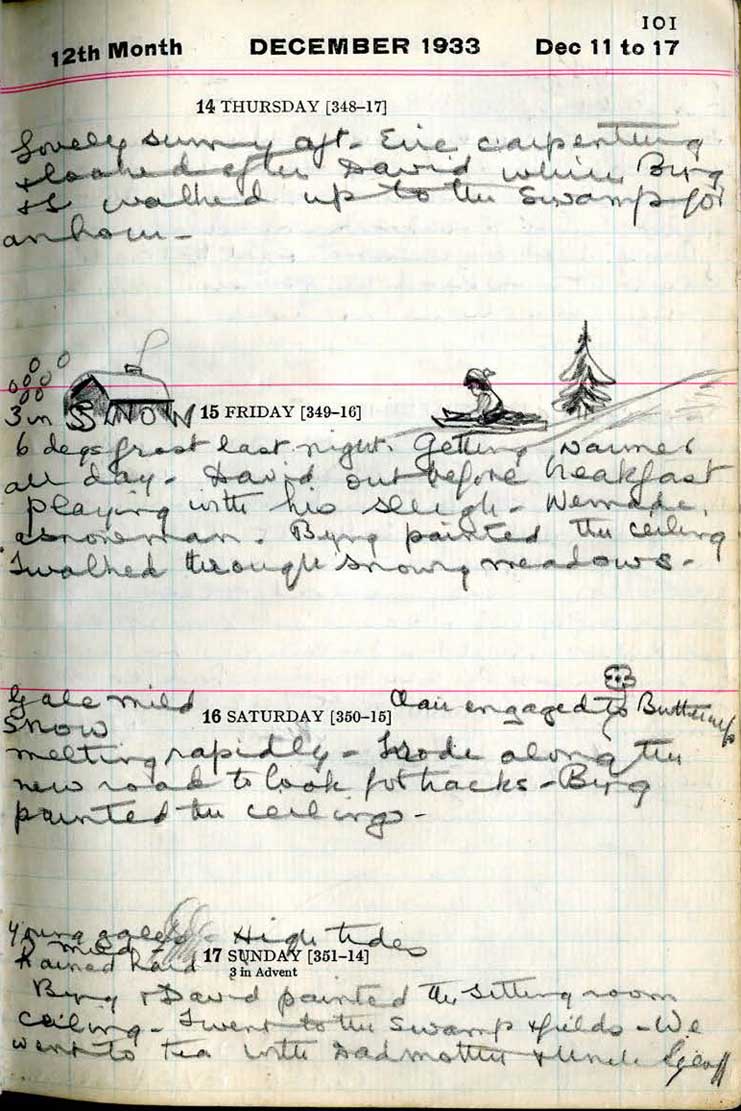 101
12th Month DECEMBER 1933 Dec 11 to 17
14 THURSDAY [348-17]
Lovely sunny aft - Eric carpentering
& looked after David while Byng
& I walked up to the Swamp for
an hour -
3 in SNOW 15 FRIDAY [349-16]
6 degs frost last night. Getting warmer
all day - David out before breakfast
playing with his sleigh - We made
a snowman. Byng painted the ceiling
I walked through snowy meadows -
Gale mild Clair engaged to Buttercup
Snow 16 SATURDAY [350-15]
melting rapidly - I rode along the
new road to look for tracks - Byng
painted the ceilings -
Young gales - High tides
mild
Rained hard 17 SUNDAY [351-14]
3 in Advent
Byng & David painted the sitting room
ceiling - I went to the swamp & fields - We
went to tea with Dad mother & Uncle Geoff